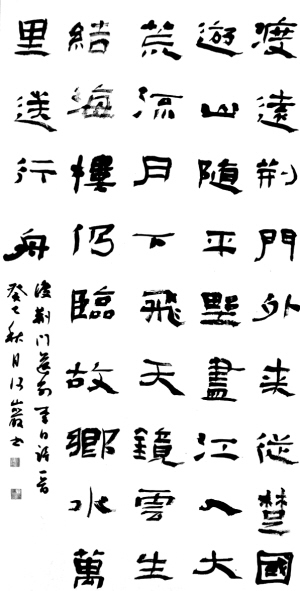 渡遠荊門外來從楚國
遊山隨平野盡江入大
荒流月下飛天鏡雲生
結海樓仍臨故鄉水萬
里送行舟
渡荊門送別李白詩一首
秋月